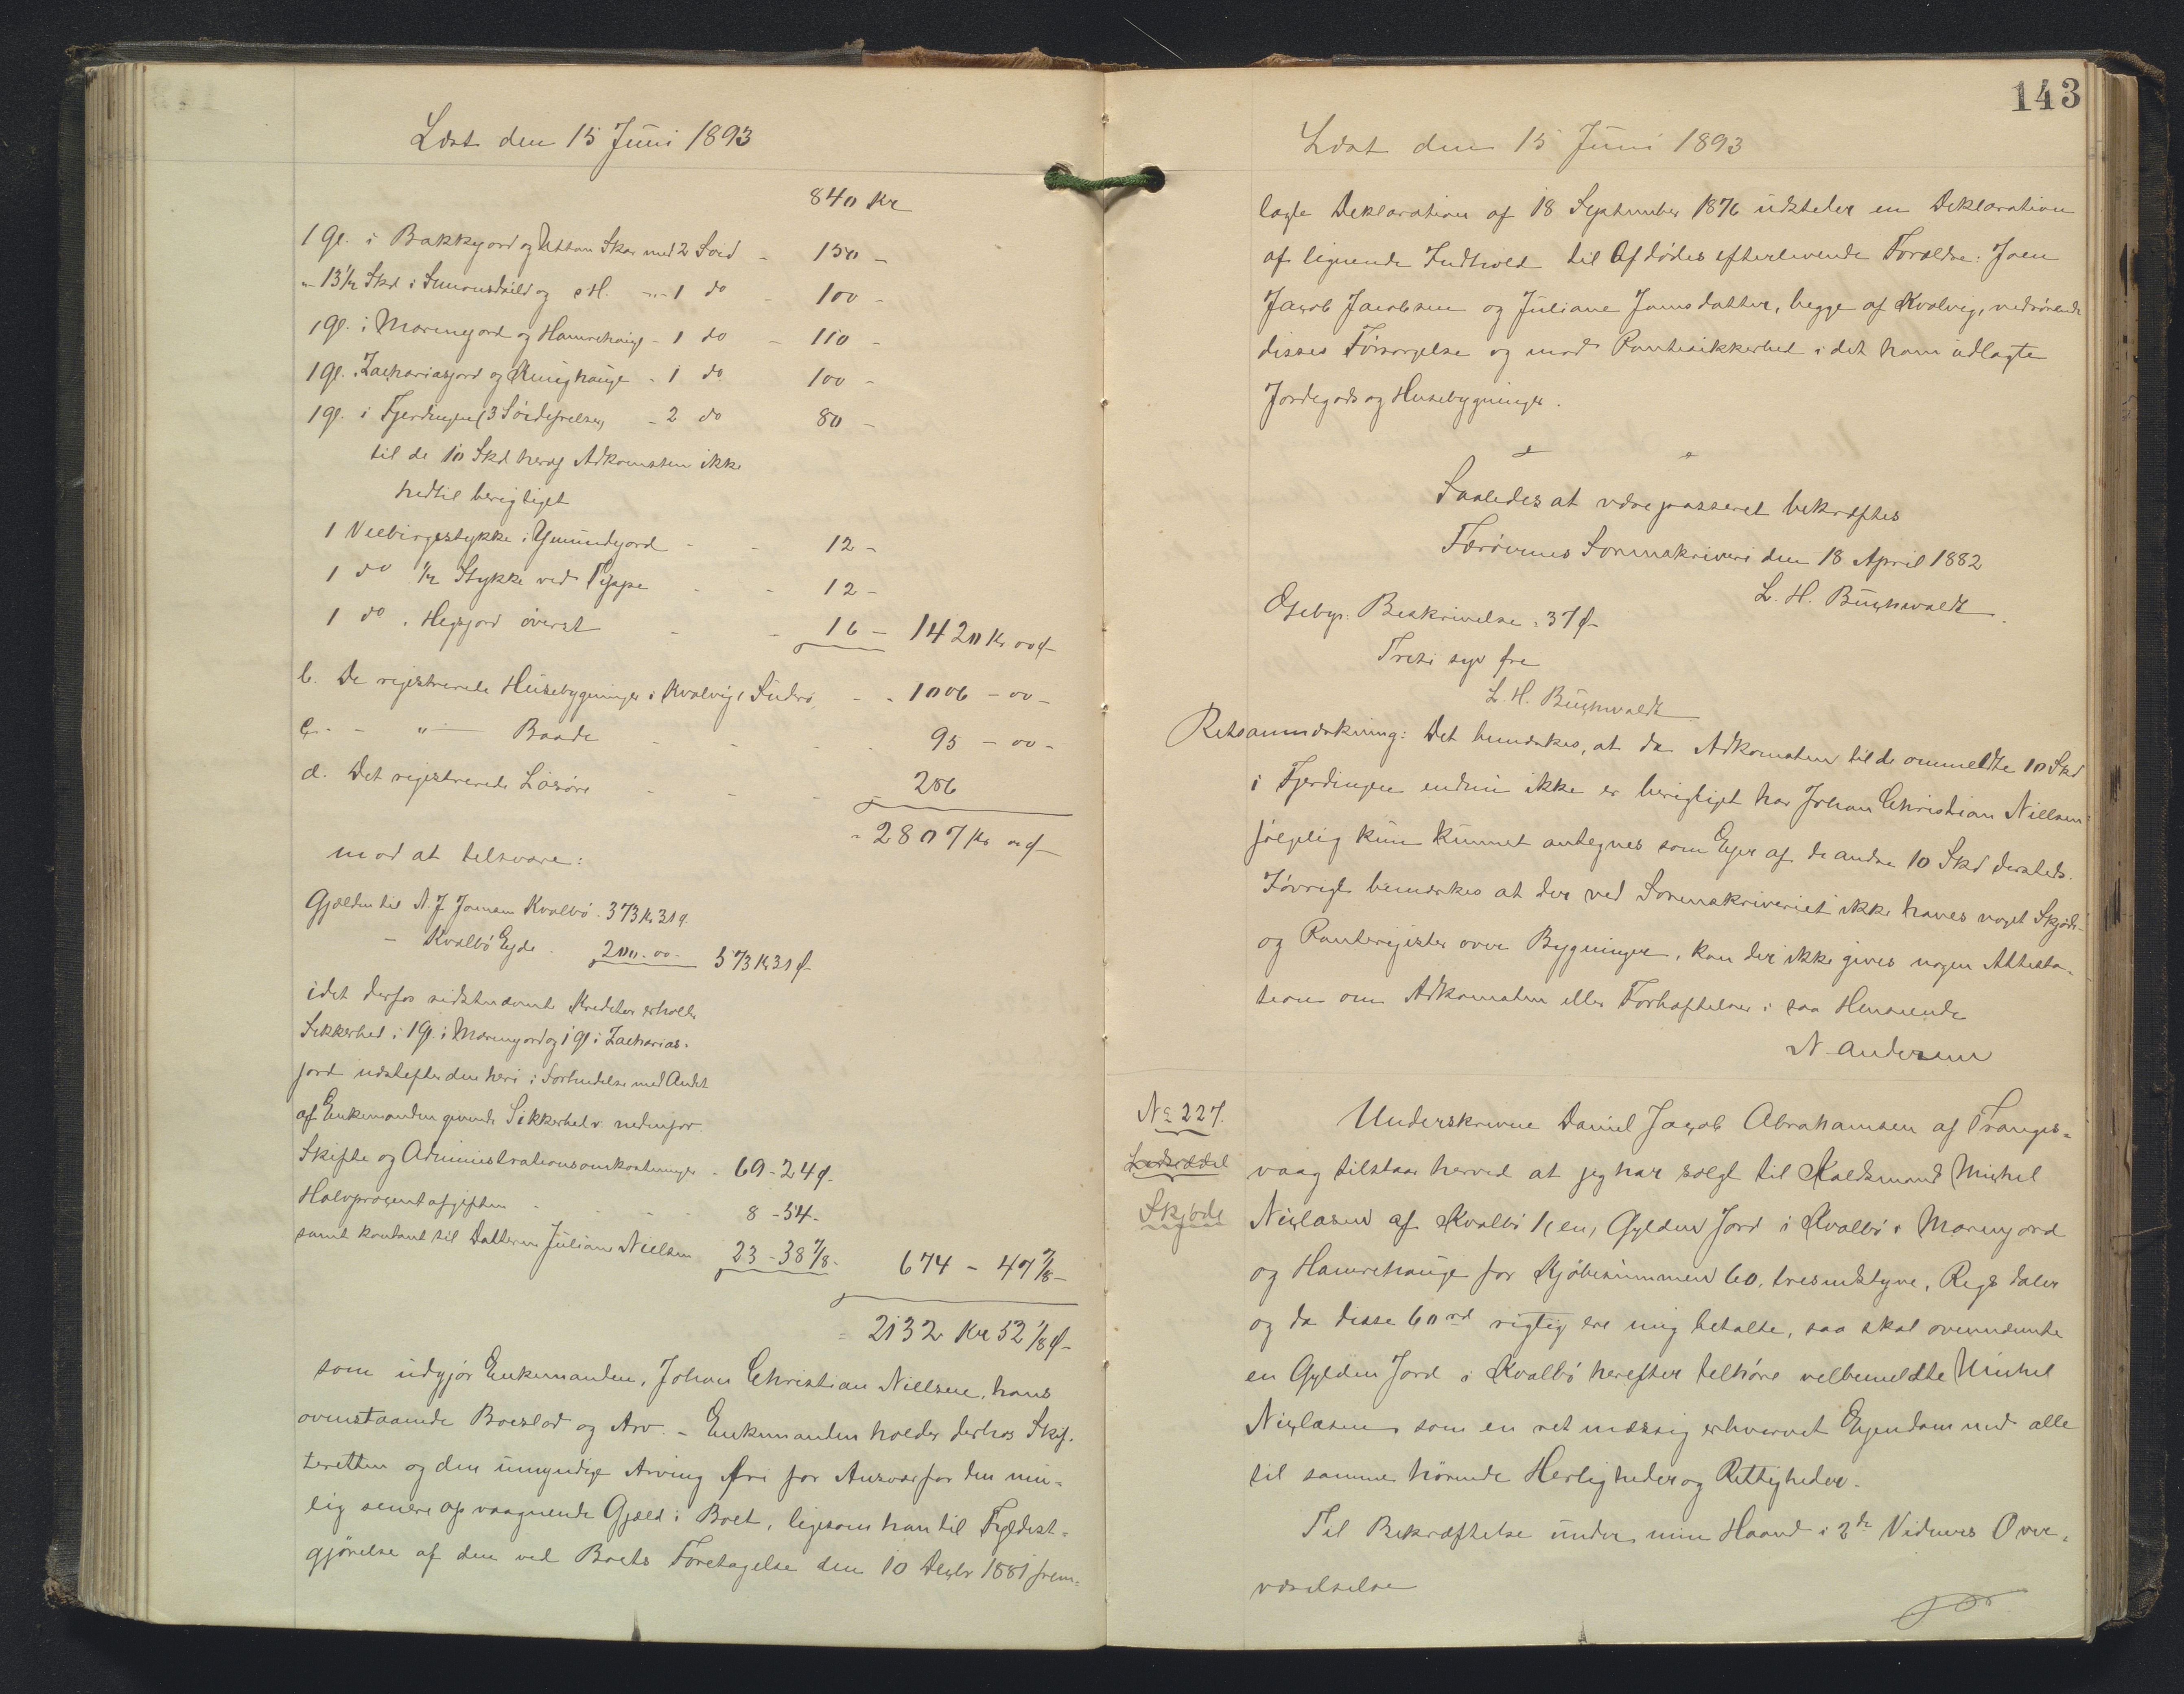 Læst den 15 Juni 1893
840 Kr
1 Gl. i Bakkejord og Uttan Skar med 2 Soid - 150 -
"- 13½ Skd i Simonsdæild og o H. -"- 1 do - 100 -
1 Gl. i Marnejord og Hamrehauge - 1 do - 110 -
1 Gl. i Zachariasjord og - 1 do 100 -
1 Gl. i Fjerdingen (3 - 2 do 80 -
til de 10 Skd heraf Adkomsten ikke
hidtil berigtiget
1 Veebirgestykke i Gmundejord - - 12 -
1 do ½ Stykke ved Typpe - - 12 -
1 do i Hegsjord överst - - 16 - 1420 Kr 00 Ø
b. De registrerede Husebygninger i Kvalvig, Suderö, - - 1006 - 00 -
c. - " - Baade - - - 95 - 00 -
d. Det registrerede Lösöre - - - 286
= 2807 Kr 00 Ø
mod at tilsvare:
Gjælden til N. J. Joensen Kvalbö . 373 Kr 31 Ø.
- Kvalbö Eyde . 200 - 00 - 573 Kr 31 Ø
idet derfor sidstnævnte Kreditor erholder
Sikkerhed i 1 Gl. i Marnejord og 1 Gl. i Zacharias-
jord udstefter den heri i Forbindelse med Andet
af Enkemanden givende Sikkerhed v. nedenfor
Skifte og Administrationsomkostninger - 69 - 24 Ø
Halvprocentafgiften - - - 8 - 54 -
samt kontant til Datteren Juliane Nielsen 23 - 38 7/8 - 674 - 47 7/8 -
= 2132 Kr 52 1/8 Ø
som udgjör Enkemanden, Johan Christian Nielsens, hans
ovenstaaende Boeslod og Arv. - Enkemanden holder derhos Skif-
teretten og den umyndige Arving fri for Ansvar for den mu-
lig senere opvaagnende Gjæld i Boet, ligesom han til Fyldest-
gjörelse af den ved Boets Foretagelse den 10 Decbr 1881 frem-
143
Læst den 15 Juni 1893
lagte Deklaration af 18 September 1876 udsteder en Deklaration
af lignende Indhold til Afdödes efterlevende Forældre: Joen
Jacob Jacobsen og Juliane Jonsdatter, begge af Kvalvig, vedrörende
disses Forsorgelse og mod Pantesikkerhed i det ham udlagte
Jordegods og Husebygninger.
Saaledes at være passeret bekræftes
Færöernes Sorenskriveri den 18 April 1882
L. H. Buchwaldt.
Gebyr. Beskrivelse: 37 Ø
Treti syv öre
L. H. Buchwaldt
Retsanmærkning: Det bemærkes, at da Adkomsten til de ommeldte 10 Skd
i Fjerdingen endnu ikke er berigtiget har Johan Christian Nielsen
fölgelig kun kunnet antegnes som Ejer af de andre 10 Skd dersteds.
Iövrigt bemærkes at der ved Sorenskriveriet ikke haves noget Skjöde-
og Panteregister over Bygninger, kan der ikke gives nogen Attesta-
tion om Adkomsten eller Forhæftelser i saa Henseende
N. Andersen
No 227.
Ledseddel
Skjöde
Underskrevne Daniel Jacob Abrahamsen af Trangis-
vaag tilstaar herved at jeg har solgt til Kaldsmand Michel
Niclasen af Kvalbö 1, en, Gylden Jord i Kvalbö i Marnejord
og Hamrehauge for Kjöbesummen 60, tresindstyve, Rigsdaler
og da disse 60 rd rigtig ere mig betalte, saa skal ovennævnte
en Gylden Jord i Kvalbö herefter tilhöre velbemeldte Michel
Niclasen som en ret mæssig erhvervet Ejendom med alle
til samme hörende Herligheder og Rettigheder.
Til Bekræftelse under min Haand i 2de Vidners Over-
værelselse